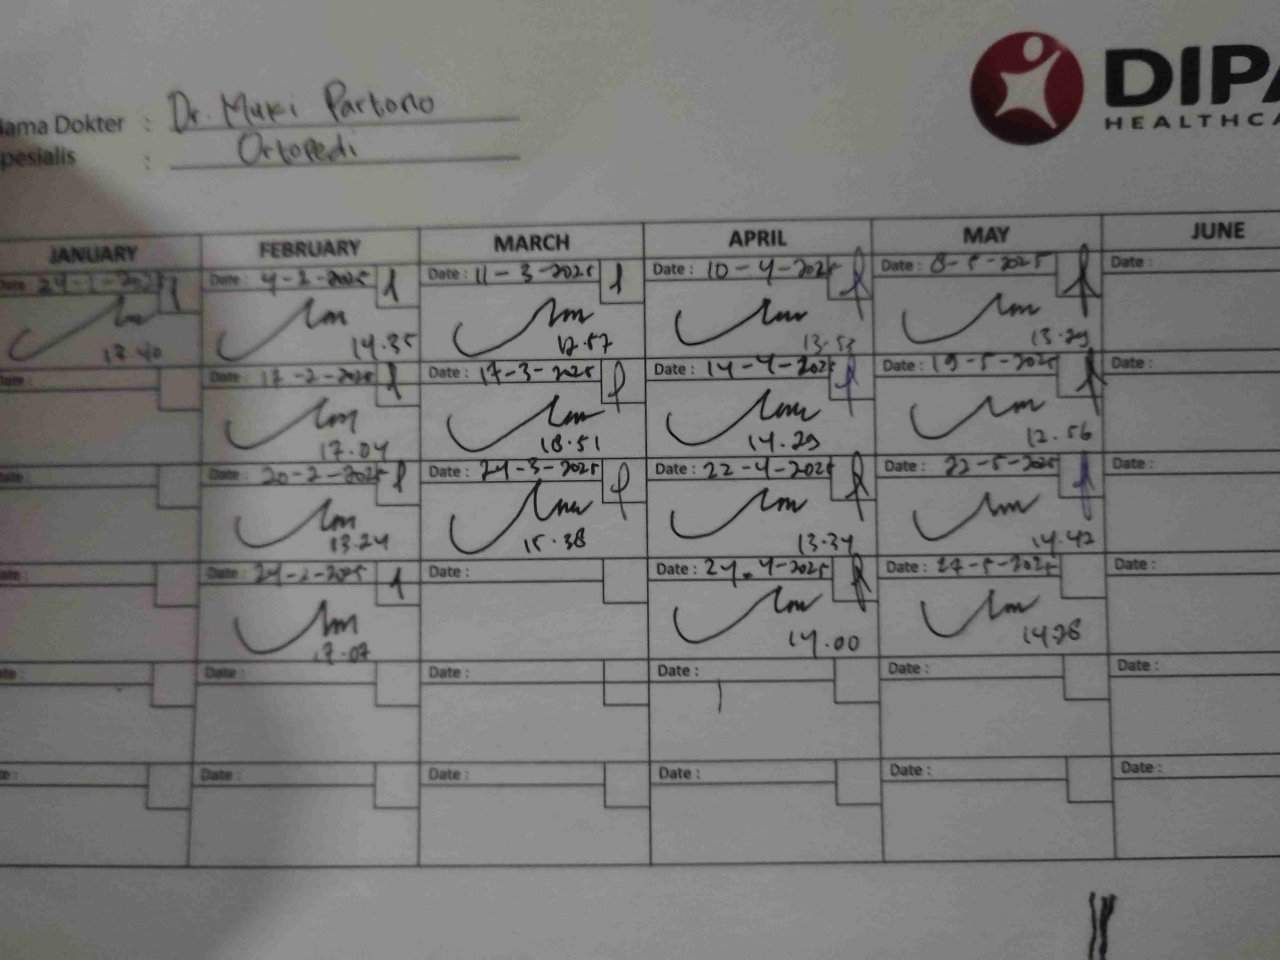 Nama Dokter : Dr. Muki Partono
Spesialis : Ortopedi
DIPA
HEALTHCA
JANUARY FEBRUARY MARCH APRIL MAY JUNE
Date : 24-1-2025 Date : 4-2-2025 Date : 11-3-2025 Date : 10-4-2025 Date : 8-5-2025 Date :
14.35 12.57 13.53 13.29
Date : Date : 17-2-2025 Date : 17-3-2025 Date : 14-4-2025 Date : 19-5-2025 Date :
17.04 18.51 14.29 12.56
Date : 20-2-2025 Date : 24-3-2025 Date : 22-4-2025 Date : 22-5-2025 Date :
13.24 15.38 13.34 14.42
Date : 24-2-2025 Date : Date : 24-4-2025 Date : 27-5-2025 Date :
17.07 14.00 14.28
Date : Date : Date : Date : Date : Date :
Date : Date : Date : Date : Date :